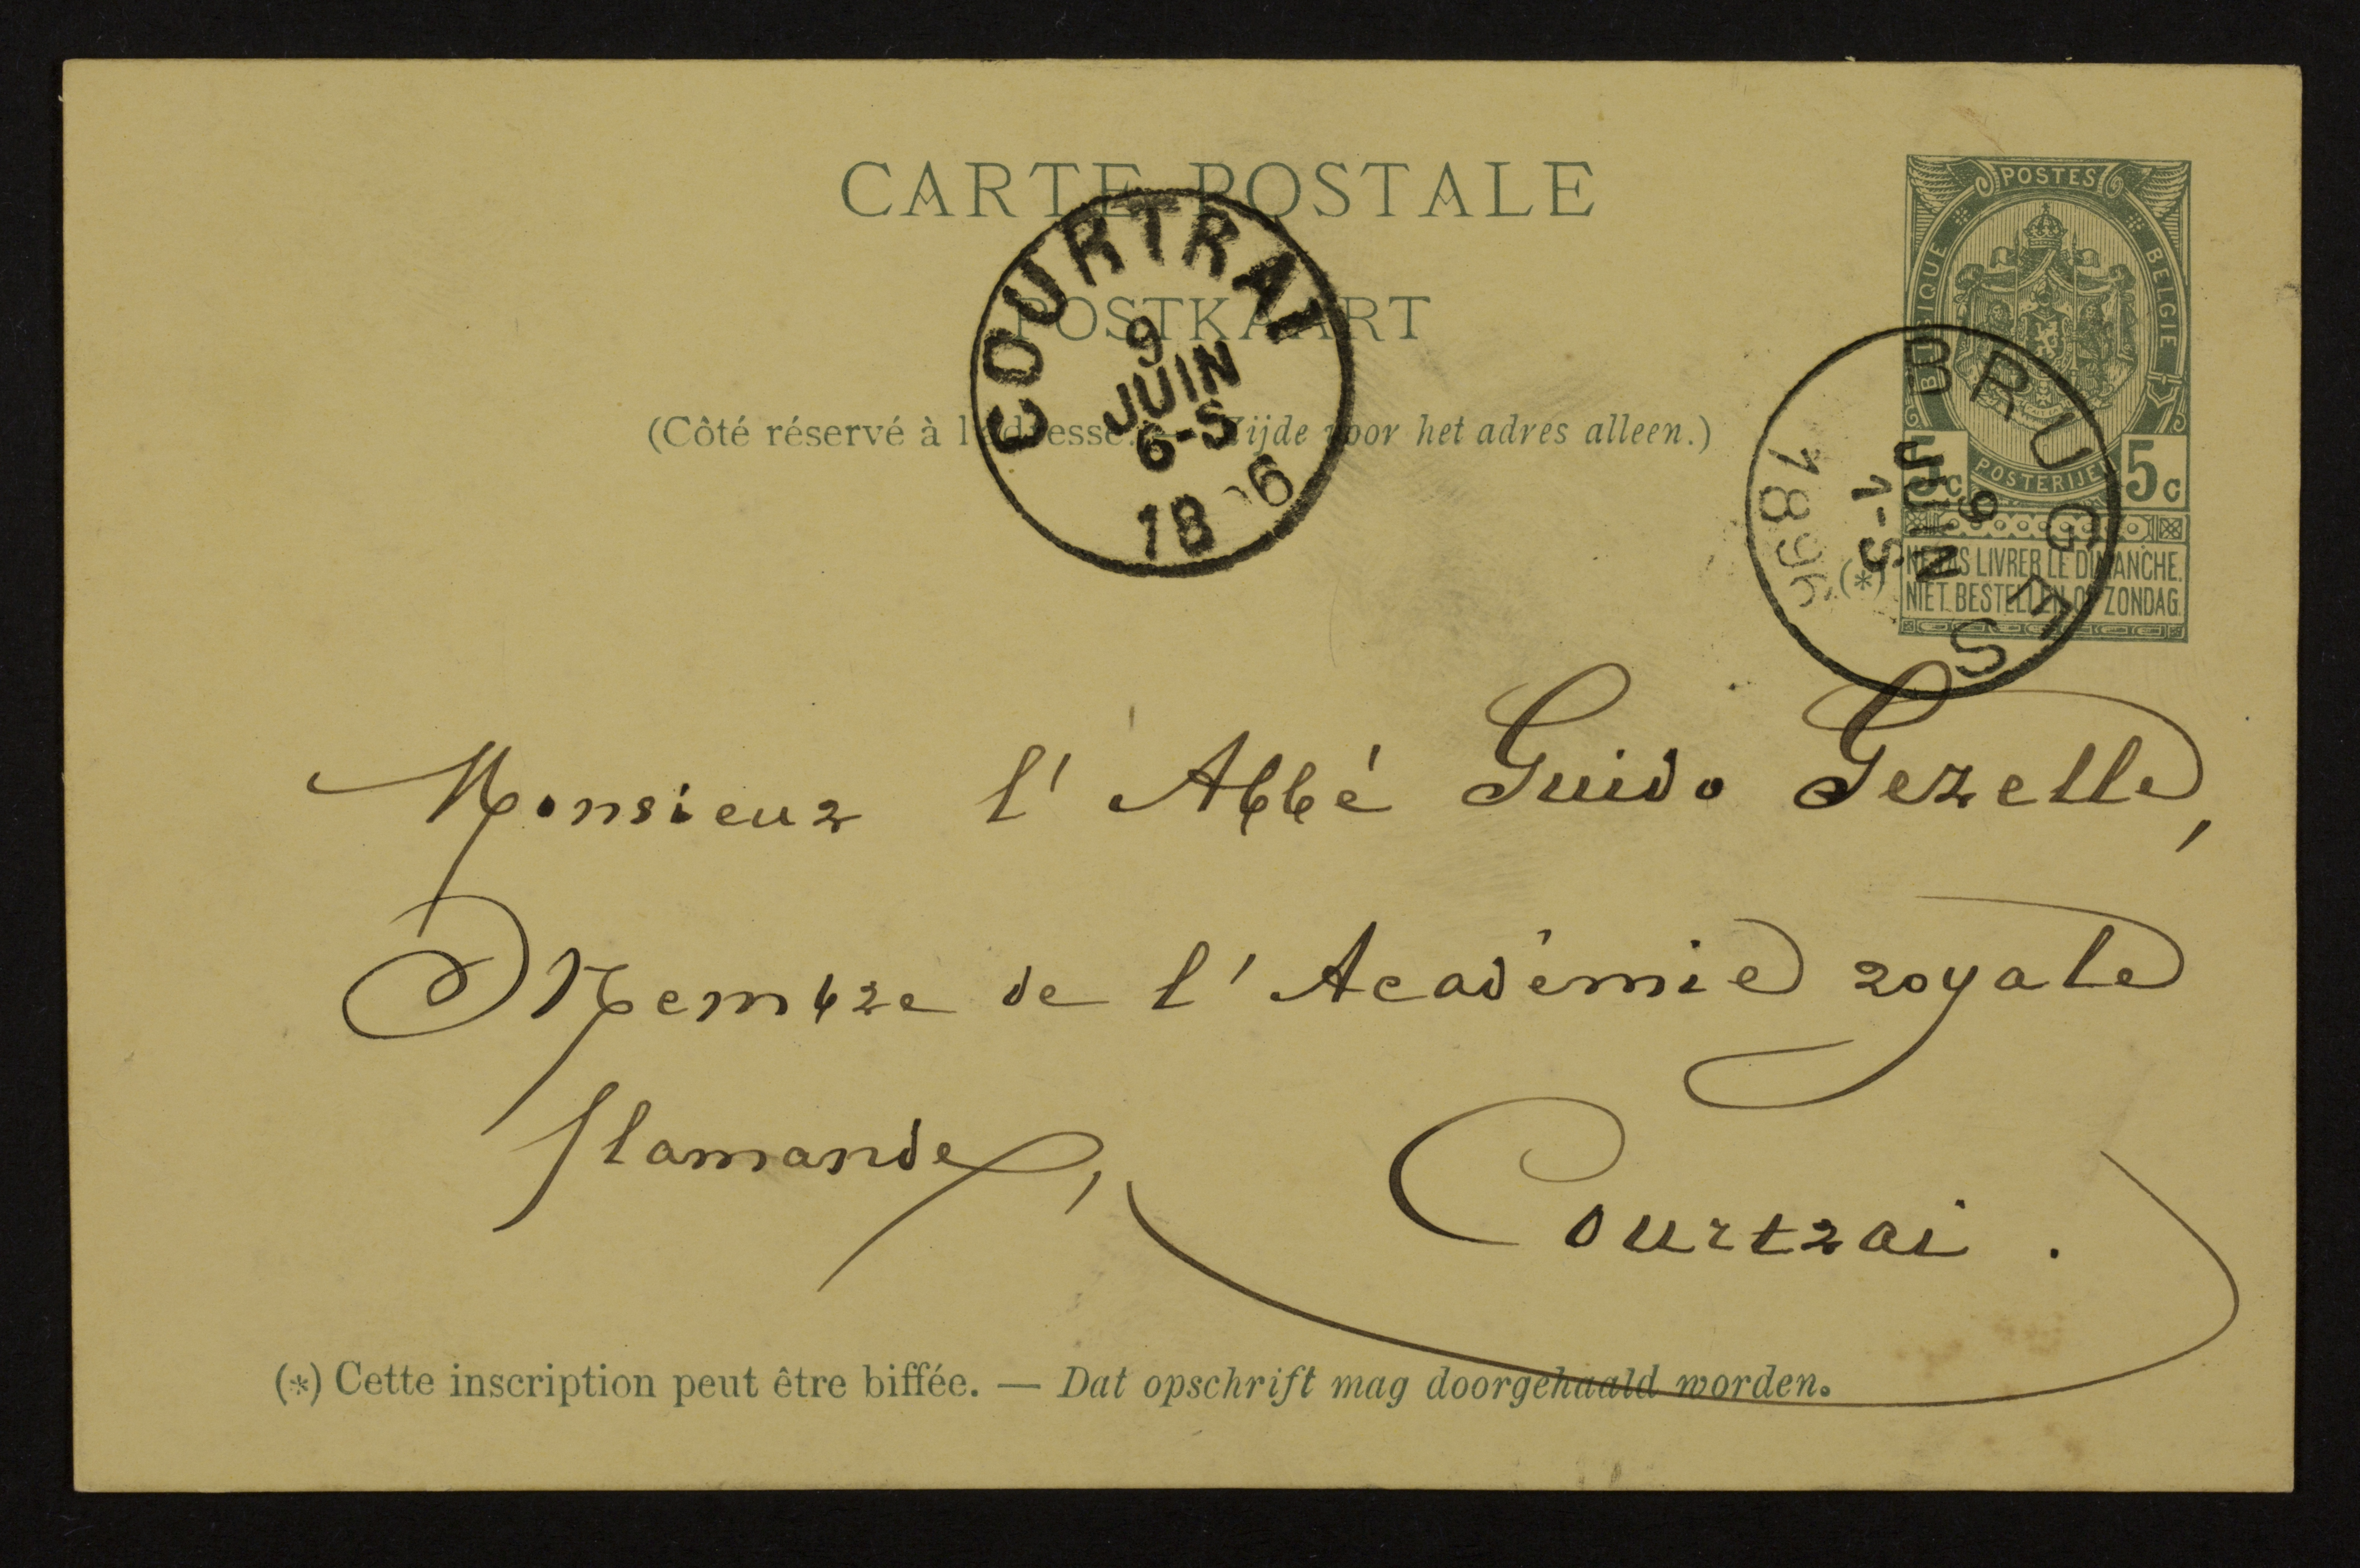 CARTE POSTALE
POSTKAART
(Côté réservé à l'adresse. — Zijde voor het adres alleen.)
COURTRAI
9
JUIN
6-S
18 6
POSTES
BELGIQUE
BELGIE
POSTERIJEN
5c 5c
(*) NE PAS LIVRER LE DIMANCHE.
NIET BESTELLEN OP ZONDAG.
BRUGES
9
JUIN
1-S
1896
Monsieur l'Abbé Guido Gezelle,
Membre de l'Académie royale
flamande,
Courtrai.
(*) Cette inscription peut être biffée. — Dat opschrift mag doorgehaald worden.